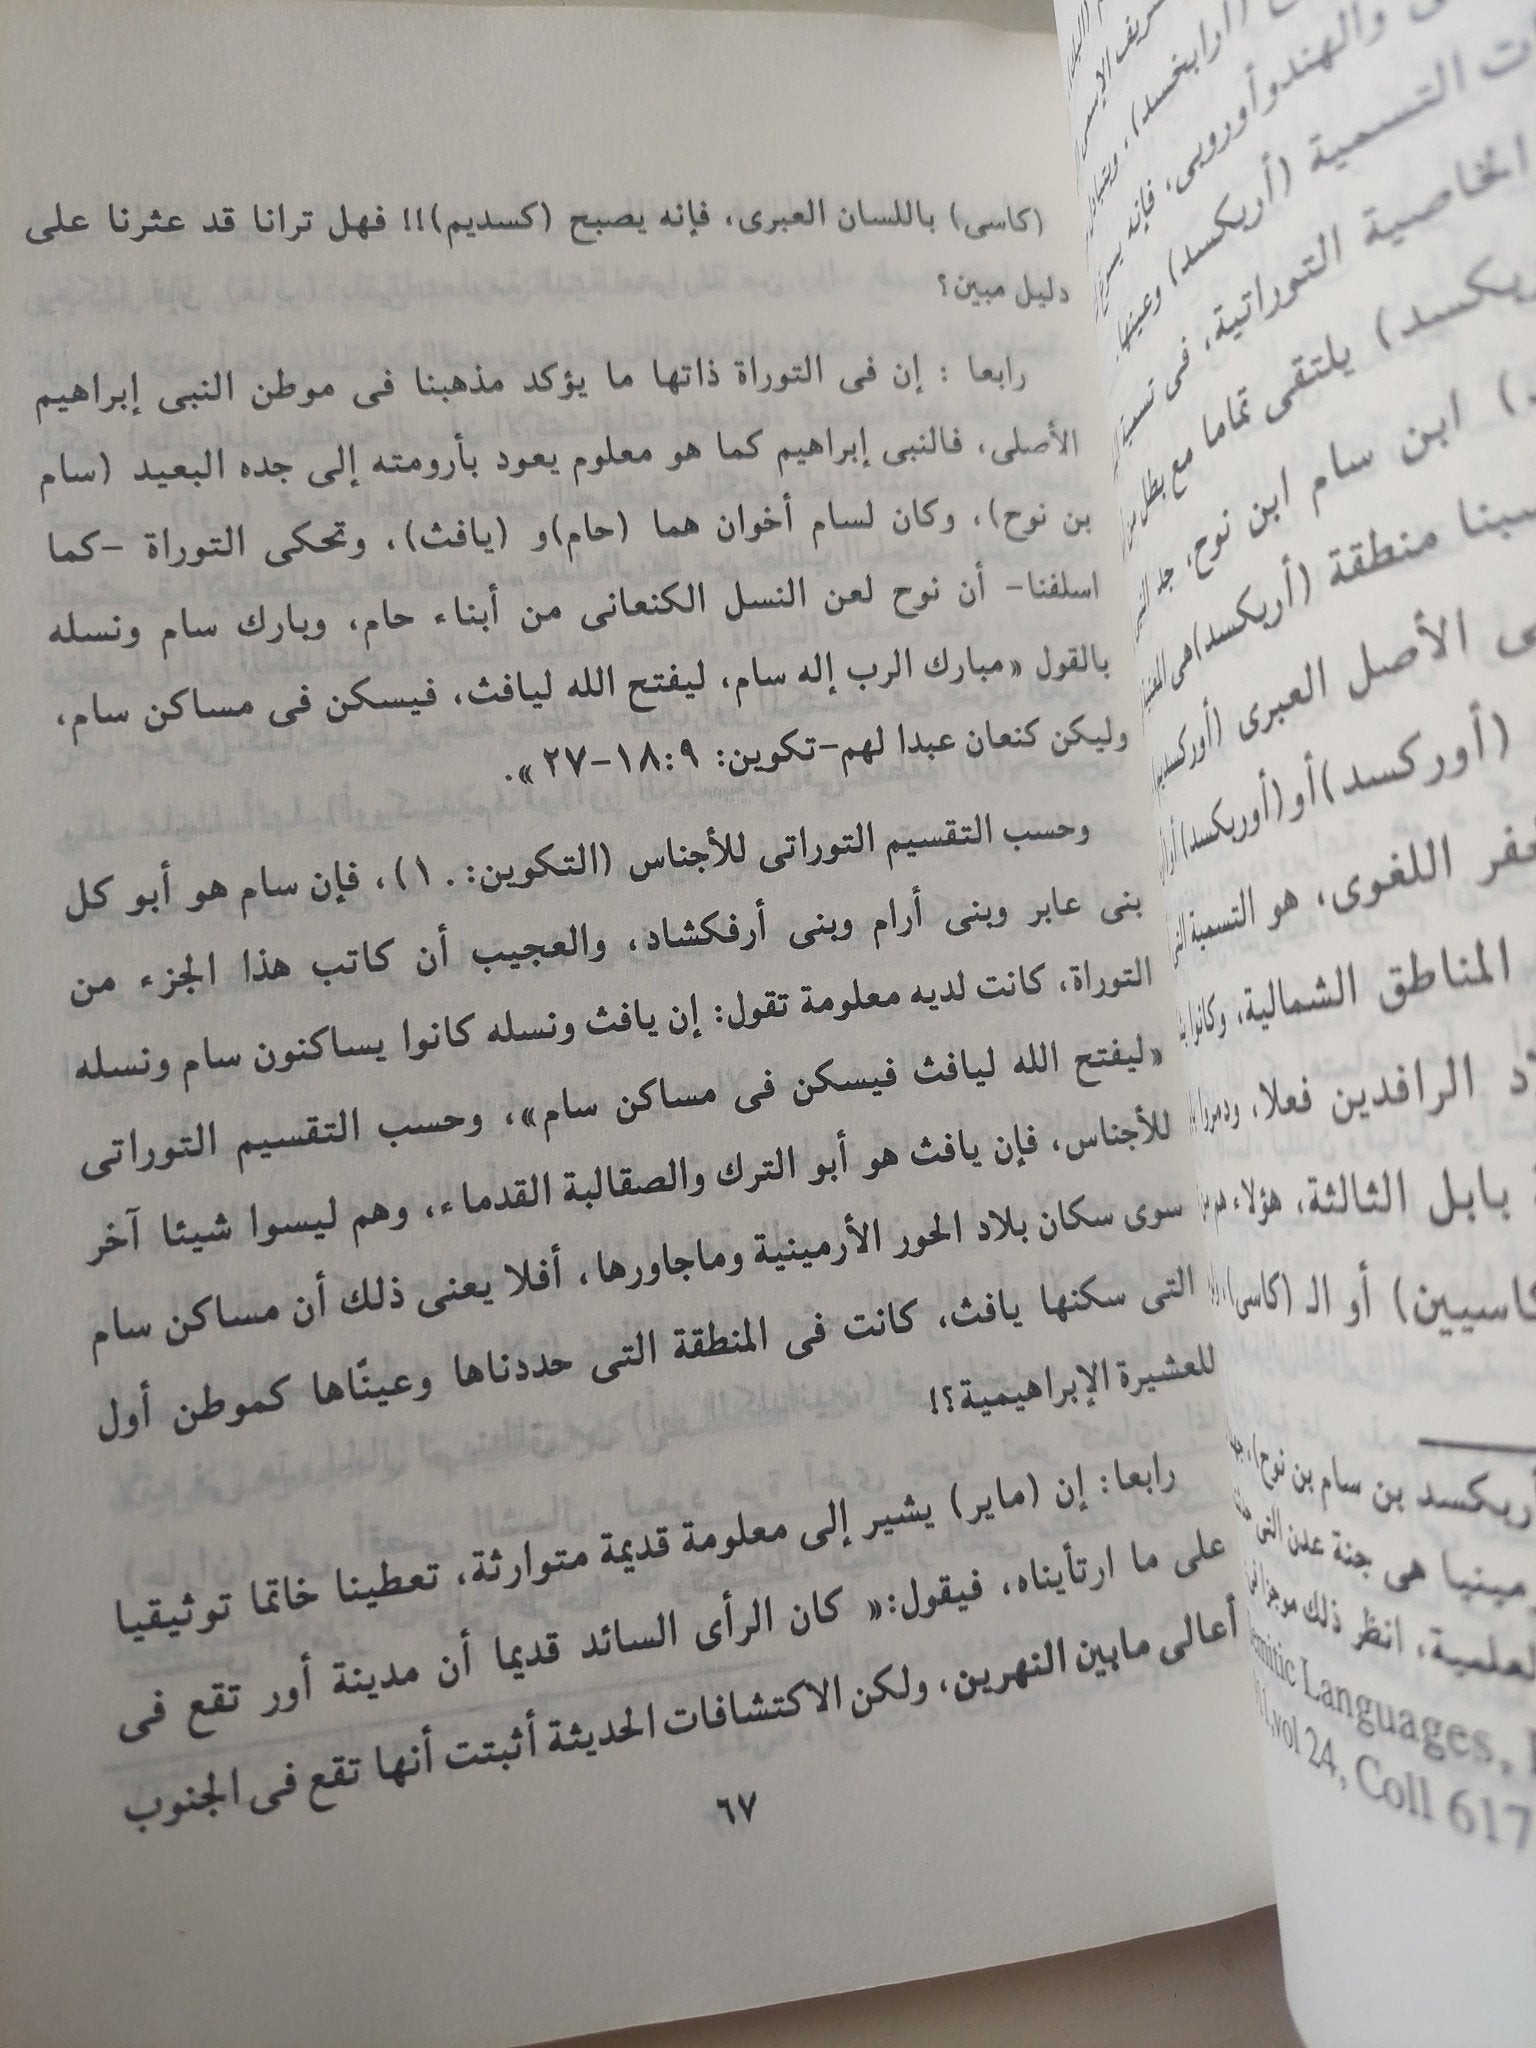 (كاسى) باللسان العبرى، فإنه يصبح (كسديم)!! فهل ترانا قد عثرنا على
دليل مبين؟
رابعا : إن فى التوراة ذاتها ما يؤكد مذهبنا فى موطن النبى إبراهيم
الأصلى، فالنبى إبراهيم كما هو معلوم يعود بأرومته إلى جده البعيد (سام
بن نوح)، وكان لسام أخوان هما (حام)و (يافث)، وتحكى التوراة -كما
اسلفنا- أن نوح لعن النسل الكنعانى من أبناء حام، وبارك سام ونسله
بالقول «مبارك الرب إله سام، ليفتح الله ليافث، فيسكن فى مساكن سام،
وليكن كنعان عبدا لهم-تكوين: ٩:١٨-٢٧ ».
وحسب التقسيم التوراتى للأجناس (التكوين: ١٠)، فإن سام هو أبو كل
بنى عابر وبنى أرام وبنى أرفكشاد، والعجيب أن كاتب هذا الجزء من
التوراة، كانت لديه معلومة تقول: إن يافث ونسله كانوا يساكنون سام ونسله
«ليفتح الله ليافث فيسكن فى مساكن سام»، وحسب التقسيم التوراتى
للأجناس، فإن يافث هو أبو الترك والصقالبة القدماء، وهم ليسوا شيئا آخر
سوى سكان بلاد الحور الأرمينية وماجاورها، أفلا يعنى ذلك أن مساكن سام
التى سكنها يافث، كانت فى المنطقة التى حددناها وعينّاها كموطن أول
للعشيرة الإبراهيمية؟!
رابعا: إن (ماير) يشير إلى معلومة قديمة متوارثة، تعطينا خاتما توثيقيا
على ما ارتأيناه، فيقول:« كان الرأى السائد قديما أن مدينة أور تقع فى
أعالى مابين النهرين، ولكن الاكتشافات الحديثة أثبتت أنها تقع فى الجنوب
٦٧
(أرابخسد)،
والهندوأوروبى، فإنه
التسمية (أريكسد) وعينها.
الخاصية التوراتية، فى تسمية
يلتقى تماما مع بطل
ابن سام ابن نوح، جد
منطقة (أريكسد)هى
الأصل العبرى
(أوركسد)أو(أوريكسد)
اللغوى، هو التسمية
المناطق الشمالية، وكانوا
الرافدين فعلا، ودمروا
بابل الثالثة، هؤلاء هم
أو الـ (كاسى)،
أريكسد بن سام بن نوح)،
هى جنة عدن التى
العلمية، انظر ذلك موجزا
Languages,
vol 24, Coll 617